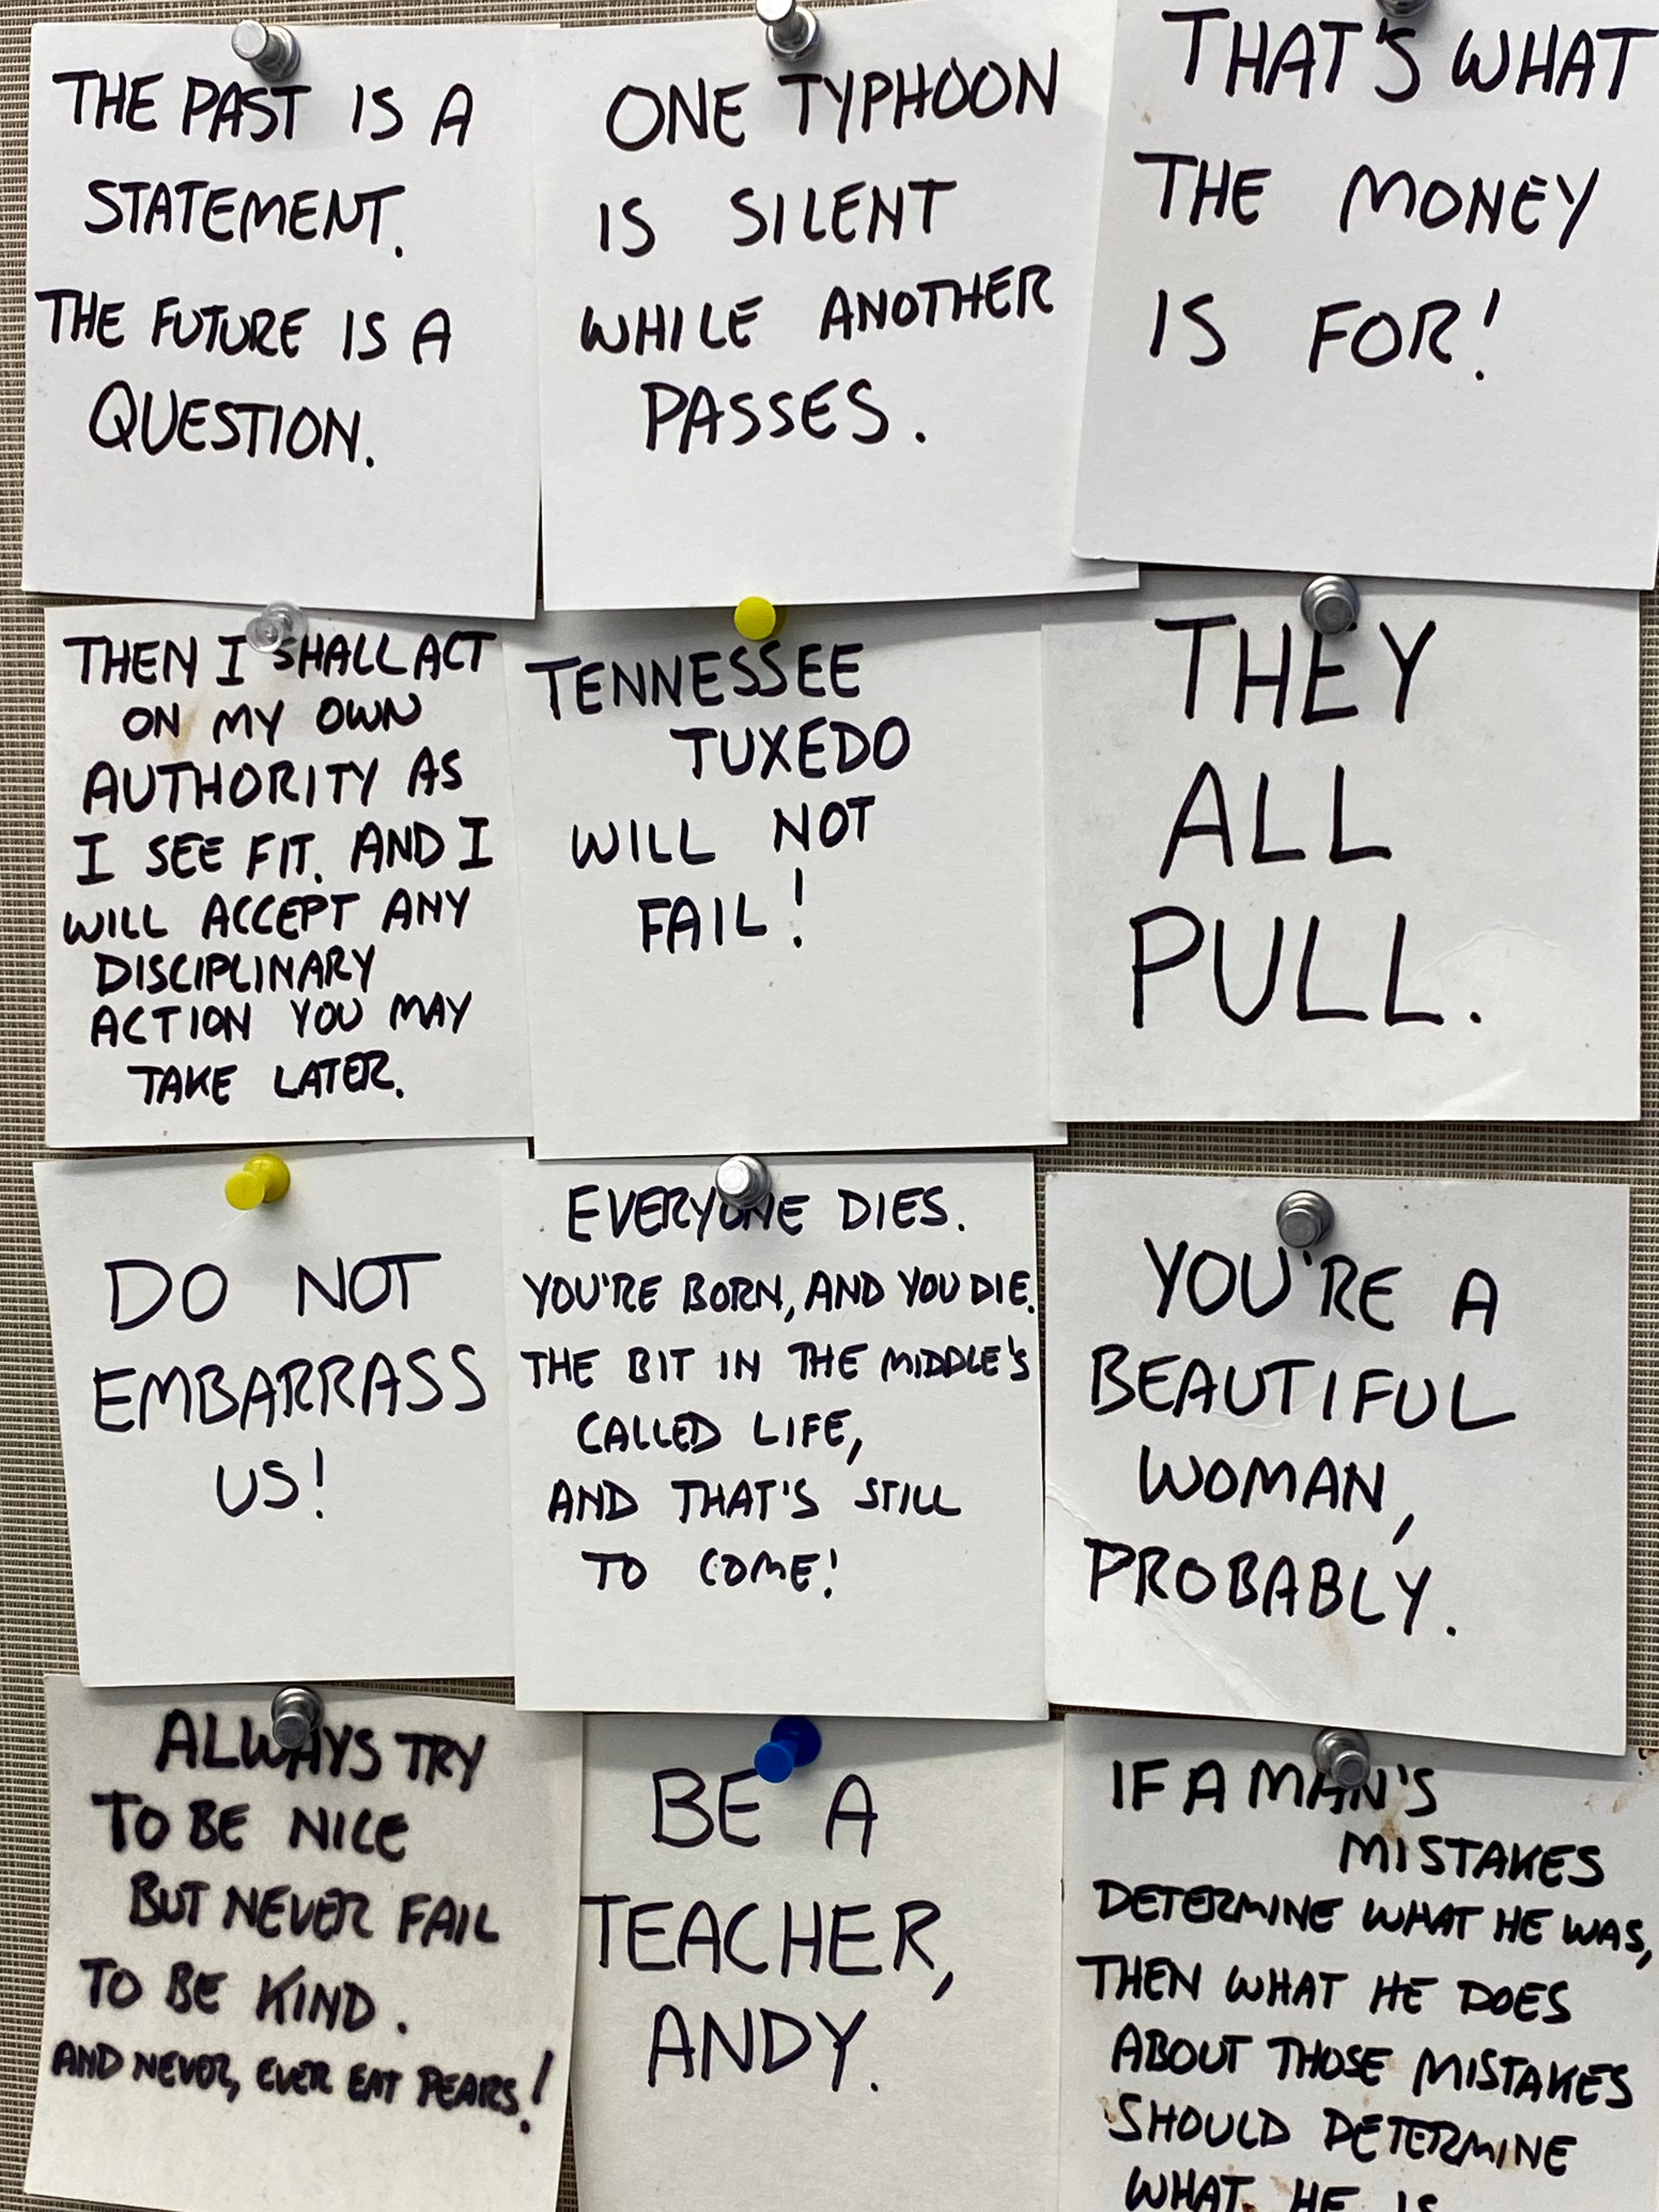 THE PAST IS A
STATEMENT.
THE FUTURE IS A
QUESTION.
ONE TYPHOON
IS SILENT
WHILE ANOTHER
PASSES.
THAT'S WHAT
THE MONEY
IS FOR!
THEN I SHALL ACT
ON MY OWN
AUTHORITY AS
I SEE FIT. AND I
WILL ACCEPT ANY
DISCIPLINARY
ACTION YOU MAY
TAKE LATER.
TENNESSEE
TUXEDO
WILL NOT
FAIL!
THEY
ALL
PULL.
DO NOT
EMBARRASS
US!
EVERYONE DIES.
YOU'RE BORN, AND YOU DIE.
THE BIT IN THE MIDDLE'S
CALLED LIFE,
AND THAT'S STILL
TO COME!
YOU'RE A
BEAUTIFUL
WOMAN,
PROBABLY.
ALWAYS TRY
TO BE NICE
BUT NEVER FAIL
TO BE KIND.
AND NEVER, EVER EAT PEARS!
BE A
TEACHER,
ANDY.
IF A MAN'S
MISTAKES
DETERMINE WHAT HE WAS,
THEN WHAT HE DOES
ABOUT THOSE MISTAKES
SHOULD DETERMINE
WHAT HE IS